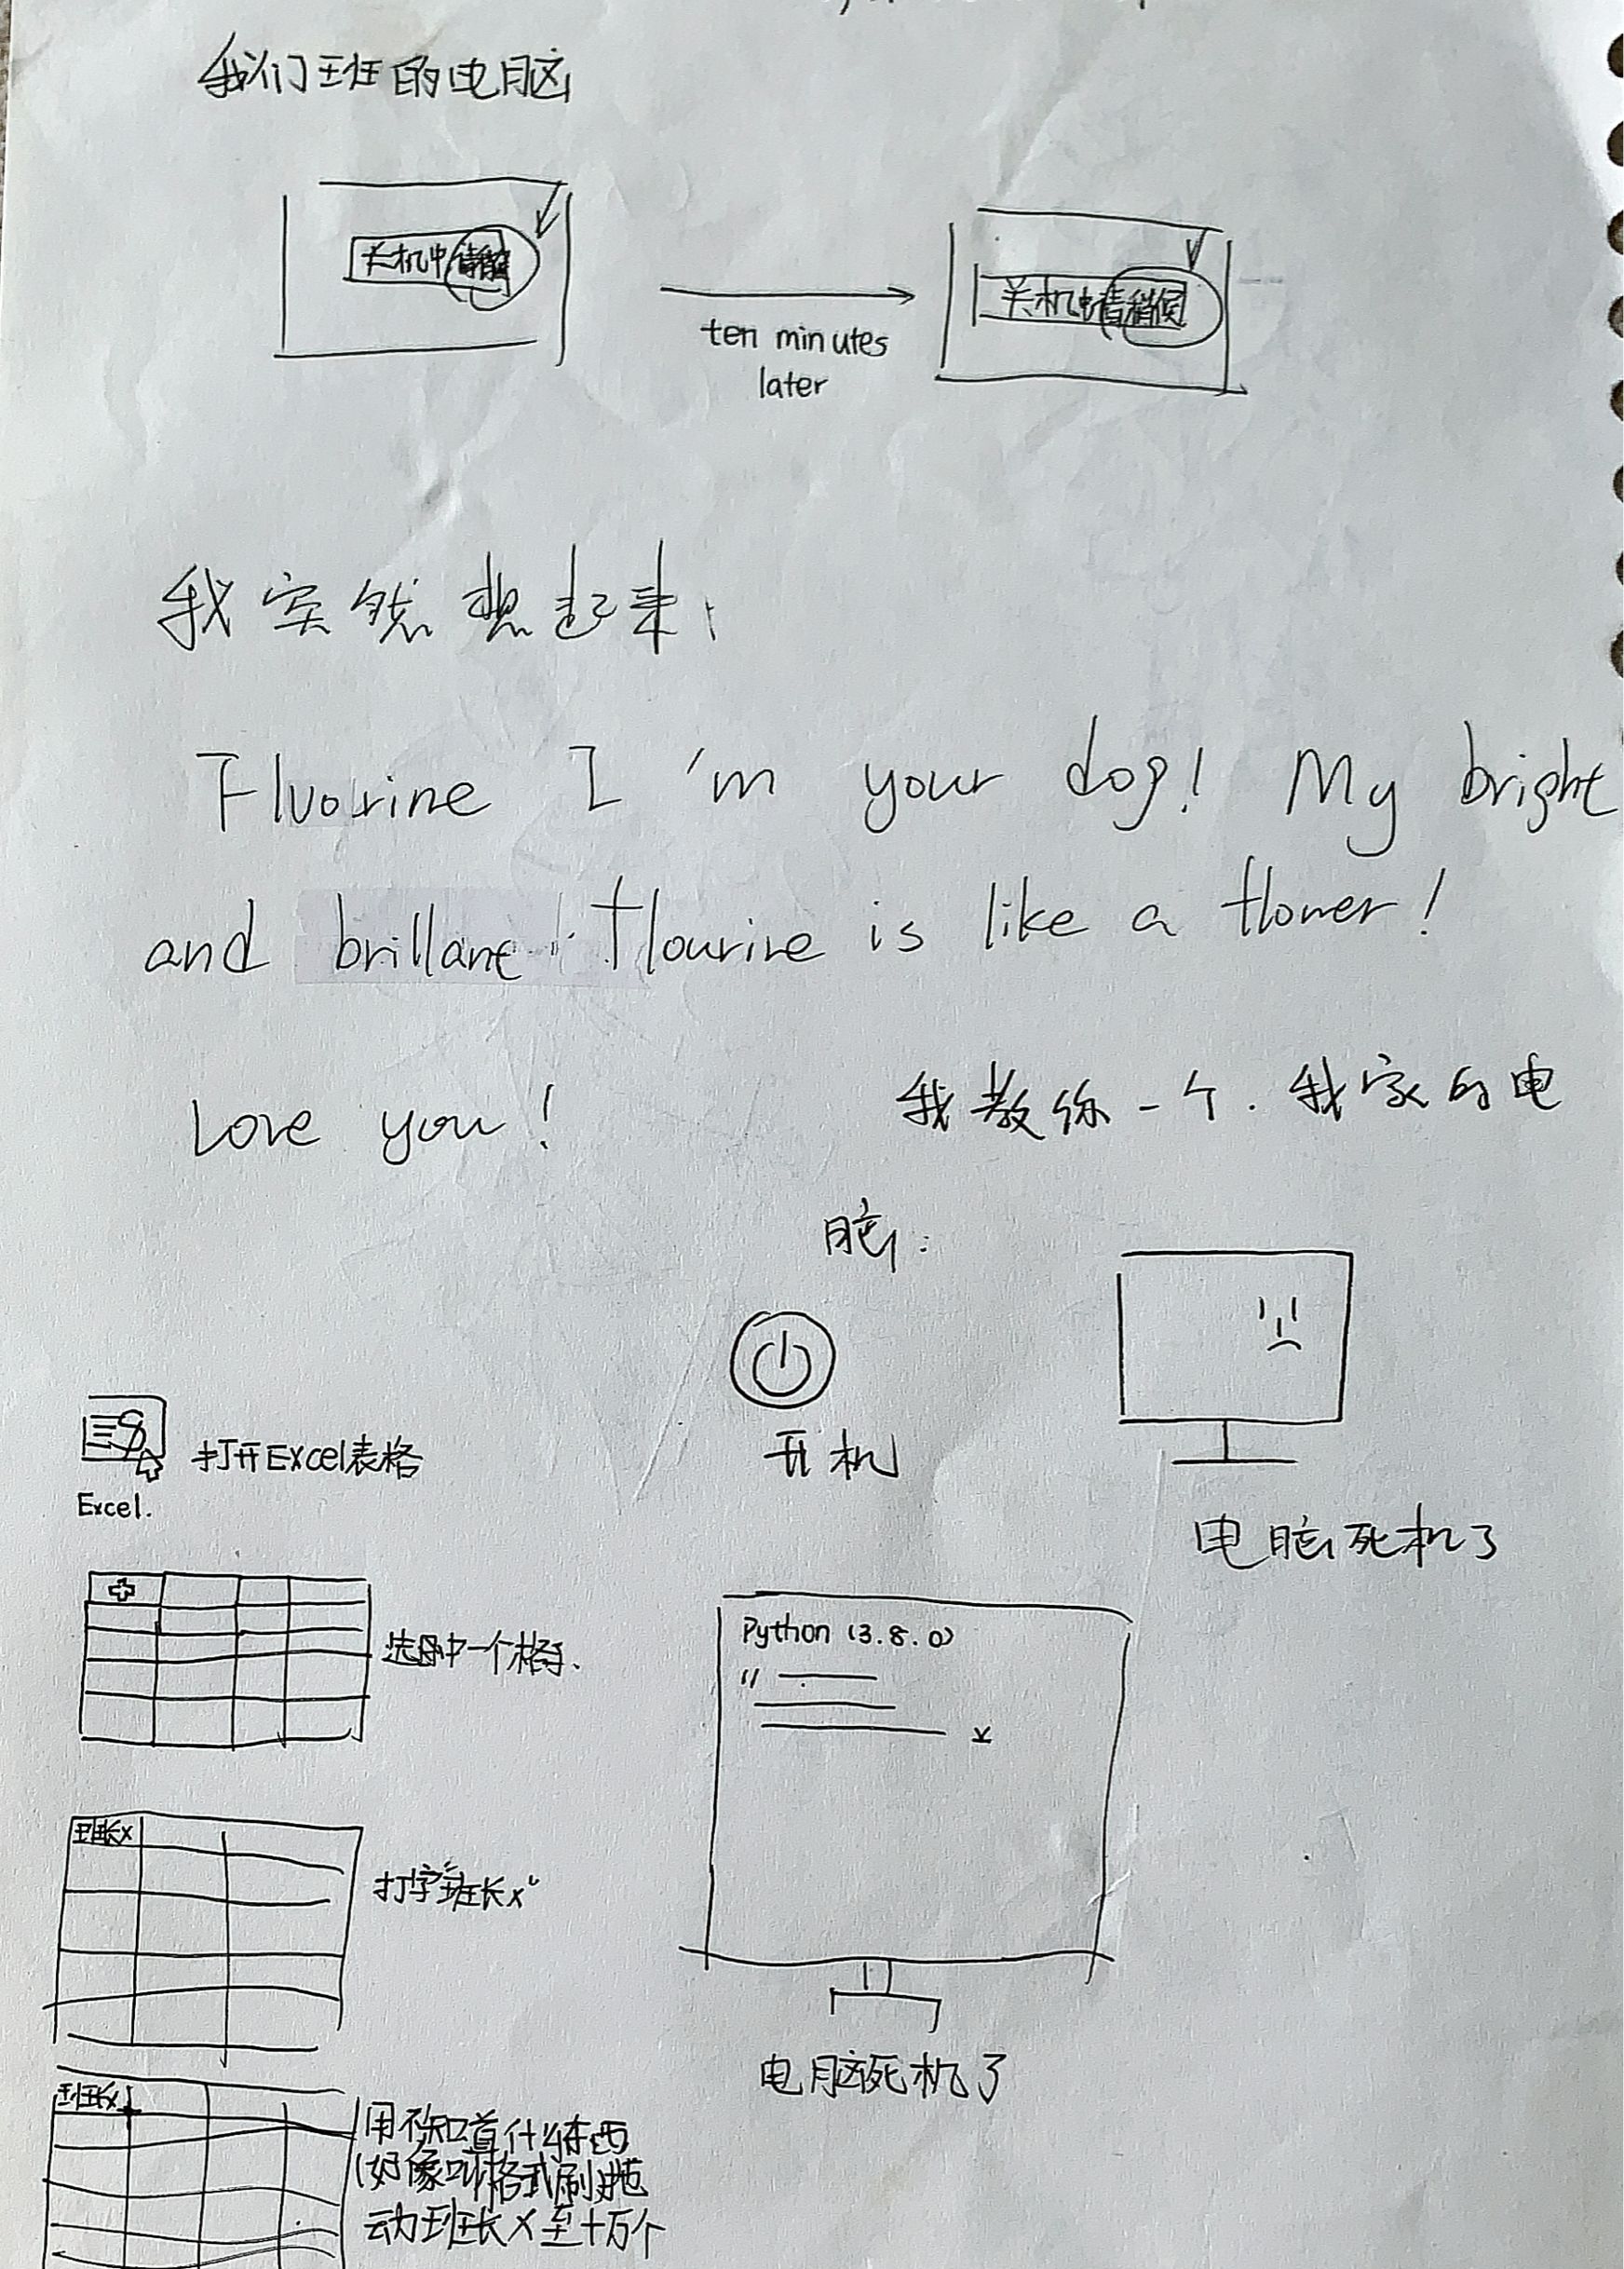 我们班的电脑
关机中请稍候
ten minutes
later
关机中请稍候
我突然想起来:
Fluorine I'm your dog! My bright
and brillant flourine is like a flower!
Love you!
我教你一个.我家的电
脑:
开机
电脑死机了
打开Excel表格
Excel.
选中一个格子.
Python (3.8.0)
班长x
打字"班长x"
电脑死机了
班长x
用不知道什么东西
(好像叫格式刷)拖
动班长X至十万个